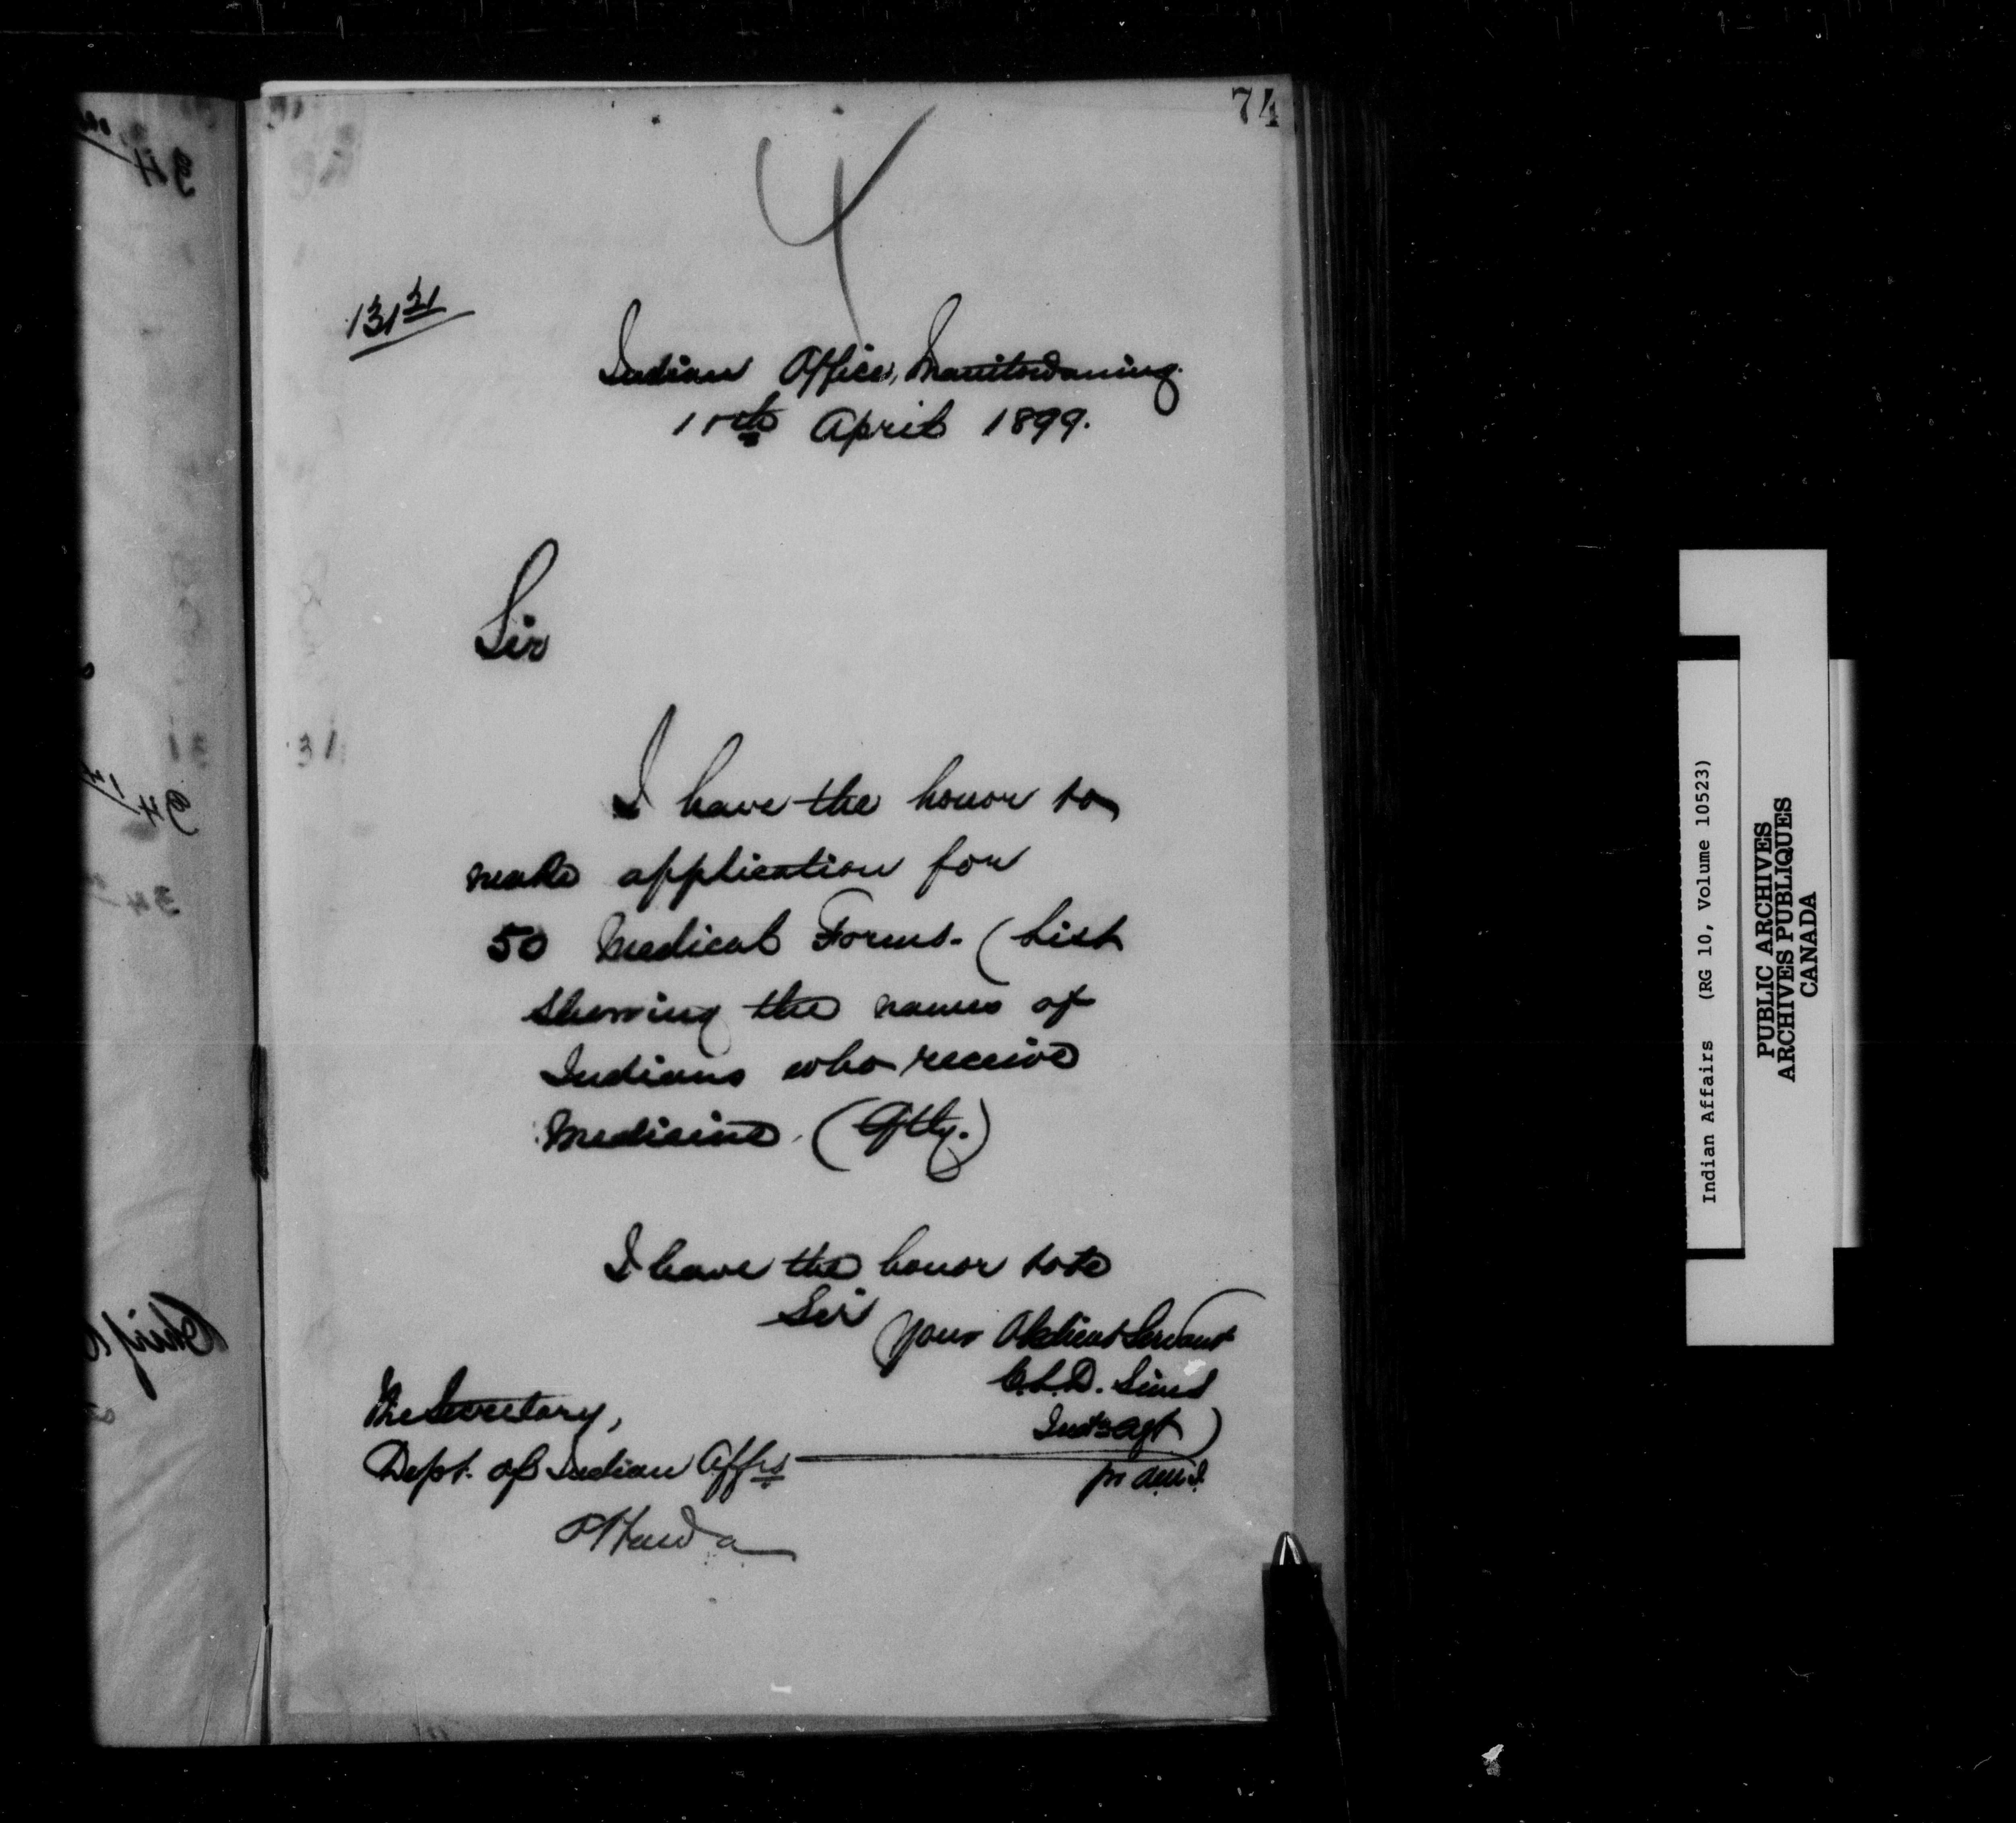 74
4
131 31
Indian Office, Manitowaning.
15th April 1899.
Sir
I have the honor to
make application for
50 Medical Forms. (List
shewing the names of
Indians who receive
Medicine. (Qtly.)
I have the honor to be
Sir
Your Obedient Servant
C.L.D. Sims
Ind. Agt
The Secretary,
Dept. of Indian Affrs
Ottawa
Indian Affairs (RG 10, Volume 10523)
PUBLIC ARCHIVES
ARCHIVES PUBLIQUES
CANADA